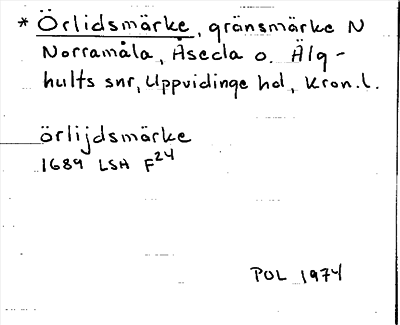 * Örlidsmärke, gränsmärke N
Norramåla, Åseda o. Älg-
hults snr, Uppvidinge hd, Kron.l.
örlijdsmärke
1689 LSA F24
POL 1974